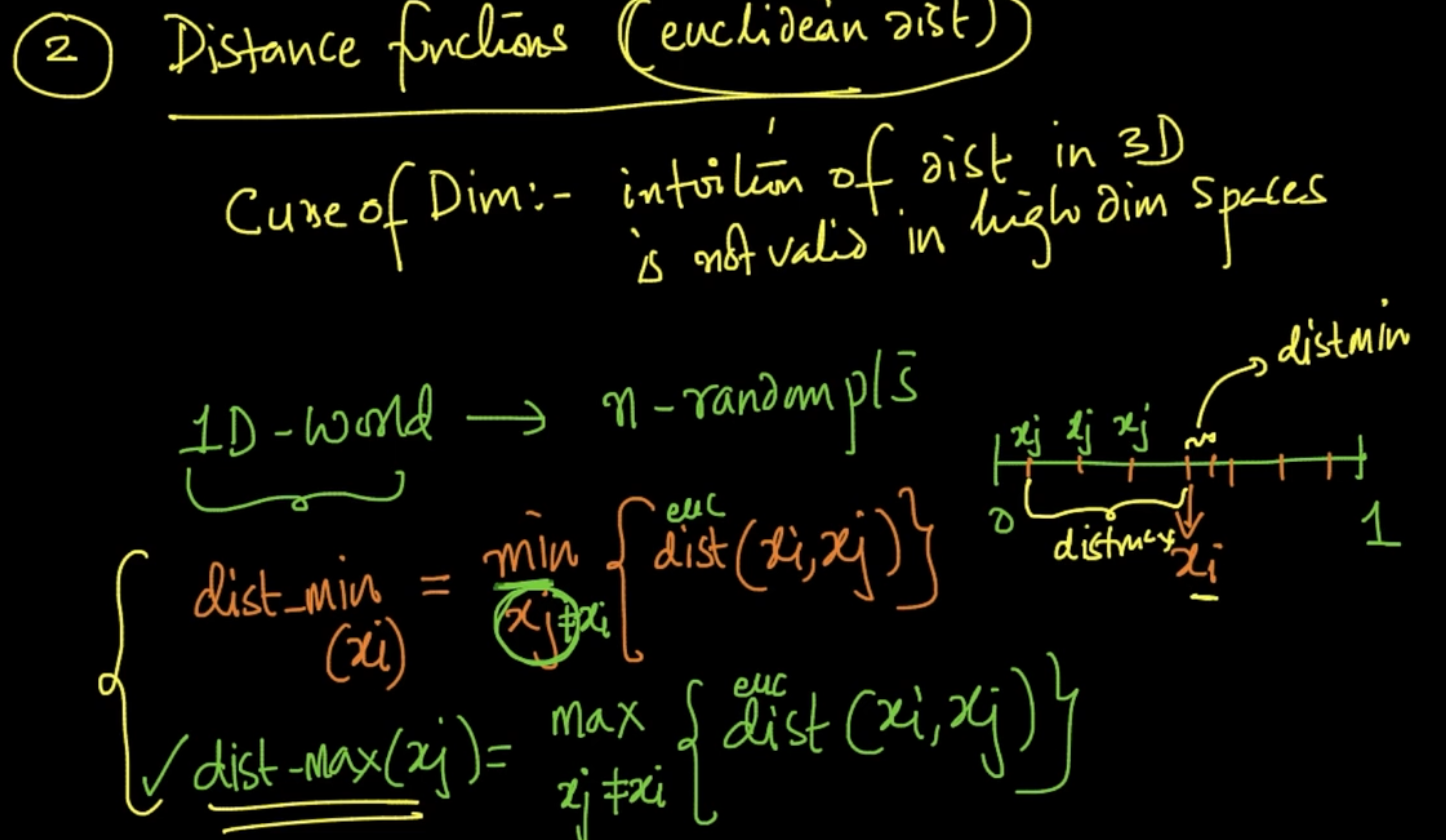 2 Distance functions (euclidean dist)
Curse of Dim:- intuition of dist in 3D
is not valid in high dim spaces
1D-world → n-random pts
distmin
xj xj xj
0 1
distmax
xi
dist_min(xi) = min xj≠xi { euc dist(xi,xj)}
✓ dist-max(xj) = max xj≠xi { euc dist(xi,xj)}